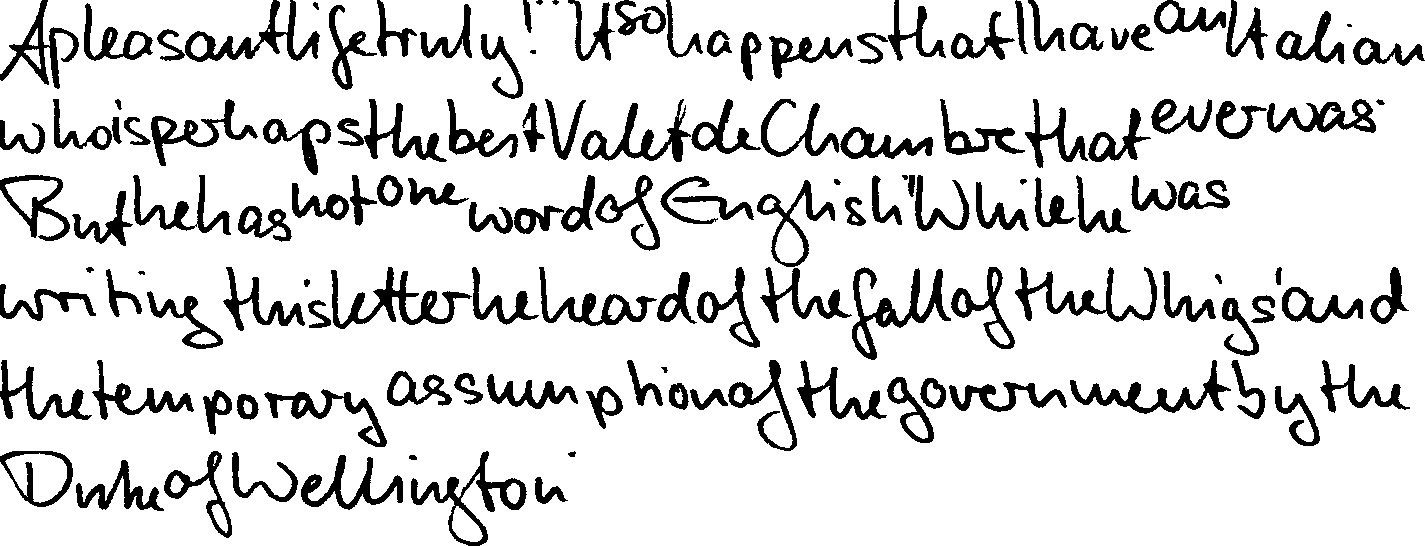 A pleasant life truly!" "It so happens that I have an Italian
who is perhaps the best Valet de Chambre that ever was.
But he has not one word of English." While he was
writing this letter he heard of the fall of the Whigs' and
the temporary assumption of the government by the
Duke of Wellington.